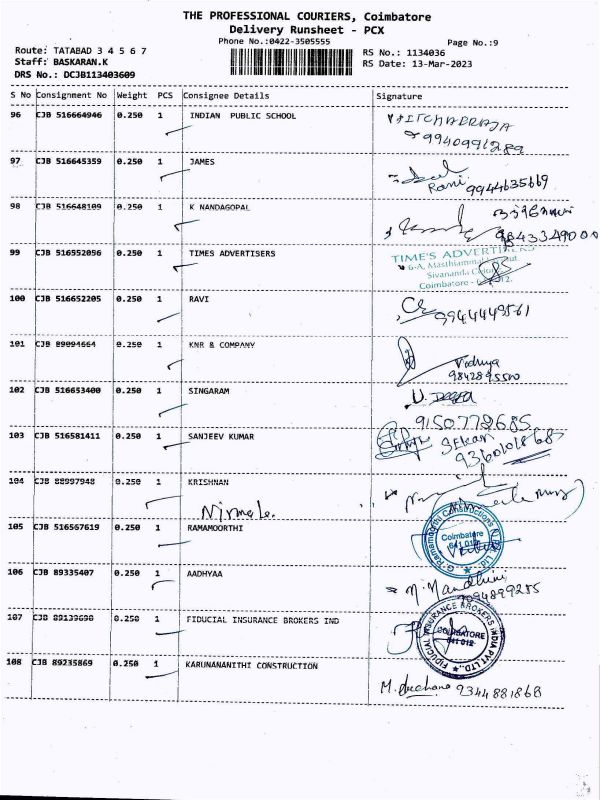 THE PROFESSIONAL COURIERS, Coimbatore
Delivery Runsheet - PCX
Phone No.:0422-3505555
Page No.:9
Route: TATABAD 3 4 5 6 7
RS No.: 1134036
Staff: BASKARAN.K
RS Date: 13-Mar-2023
DRS No.: DCJB113403609
S No Consignment No Weight PCS Consignee Details Signature
96 CJB 516664946 0.250 1 INDIAN PUBLIC SCHOOL
9940991289
97 CJB 516645359 0.250 1 JAMES
Rani 9944635669
98 CJB 516648109 0.250 1 K NANDAGOPAL
9843349000
99 CJB 516552056 0.250 1 TIMES ADVERTISERS
TIME'S ADVERTISERS
6-A, Masthiammal
Sivananda Colony
Coimbatore -
100 CJB 516652205 0.250 1 RAVI
9944449561
101 CJB 89094664 0.250 1 KNR & COMPANY
Vidhya
9842895500
102 CJB 516653400 0.250 1 SINGARAM
9150778685
103 CJB 516581411 0.250 1 SANJEEV KUMAR
93601018685
104 CJB 88997948 0.250 1 KRISHNAN
Nirmala.
105 CJB 516567619 0.250 1 RAMAMOORTHI
G. Ramamoorthi Constructions (I) Pvt. Ltd.
Coimbatore
641 012
106 CJB 89335407 0.250 1 AADHYAA
N. Nandhini
9094899285
107 CJB 89139690 0.250 1 FIDUCIAL INSURANCE BROKERS IND
FIDUCIAL INSURANCE BROKERS INDIA PVT LTD.,
COIMBATORE
641 012
108 CJB 89235869 0.250 1 KARUNANANITHI CONSTRUCTION
9344881868